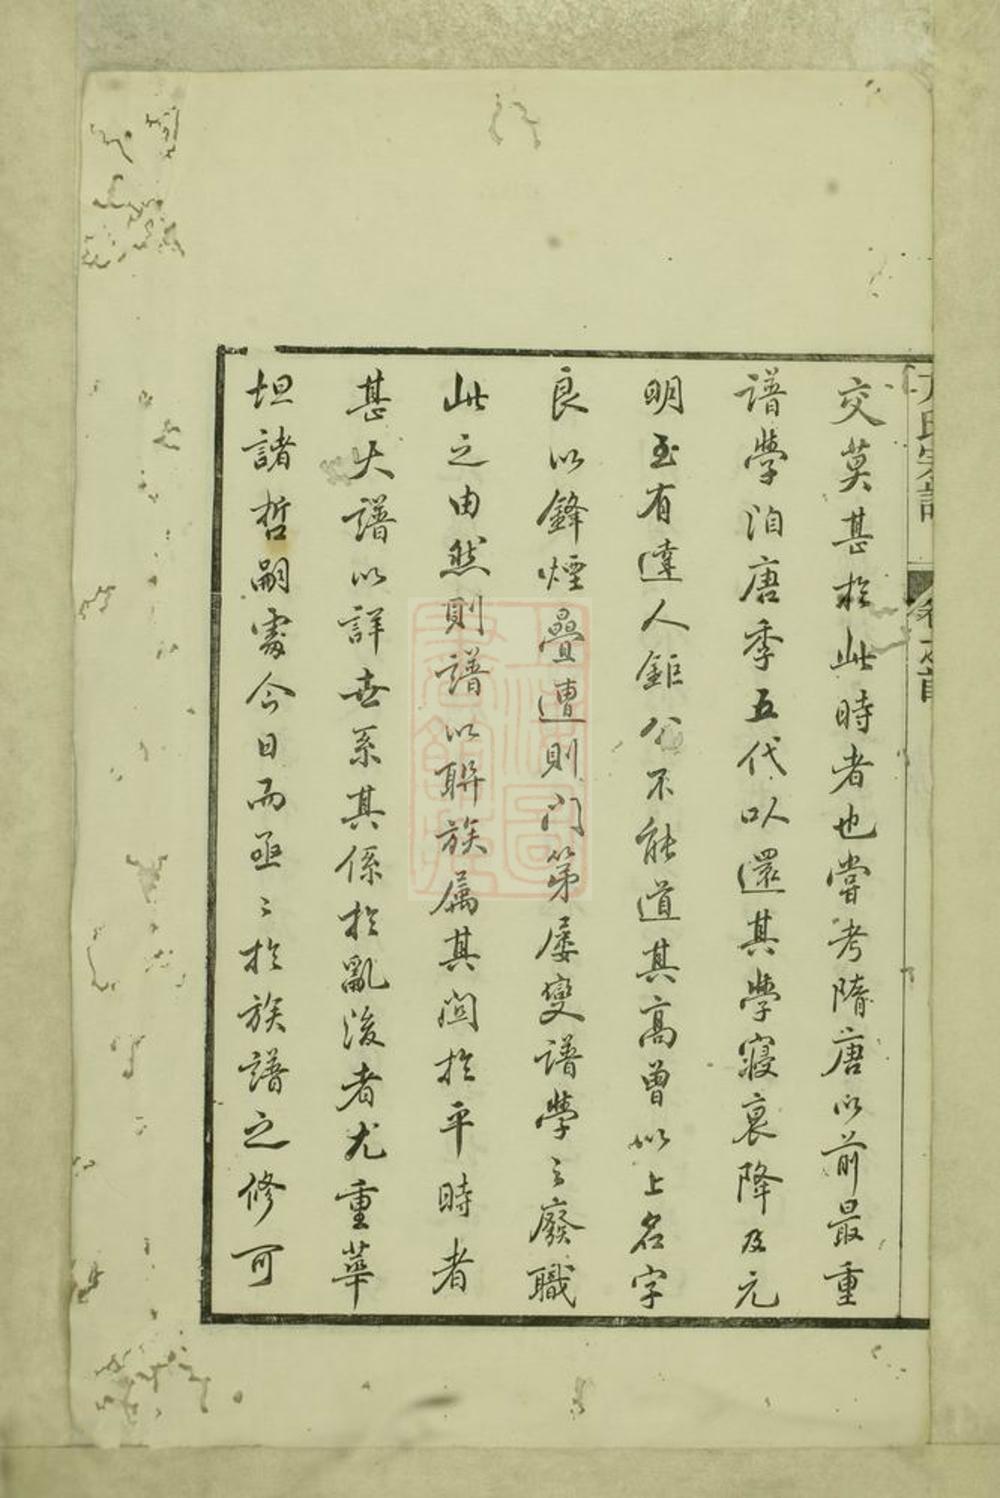 氏宗譜 卷之首
交莫甚於此時者也嘗考隋唐以前最重
譜學洎唐季五代以還其學寖衰降及元
明至有達人鉅公不能道其高曾以上名字
良以鋒煙疊遭則門第屢變譜學之廢職
此之由然則譜以聯族属其関於平時者
甚大譜以詳世系其係於亂後者尤重華
坦諸哲嗣處今日而亟〻於族譜之修可
上海圖書館藏